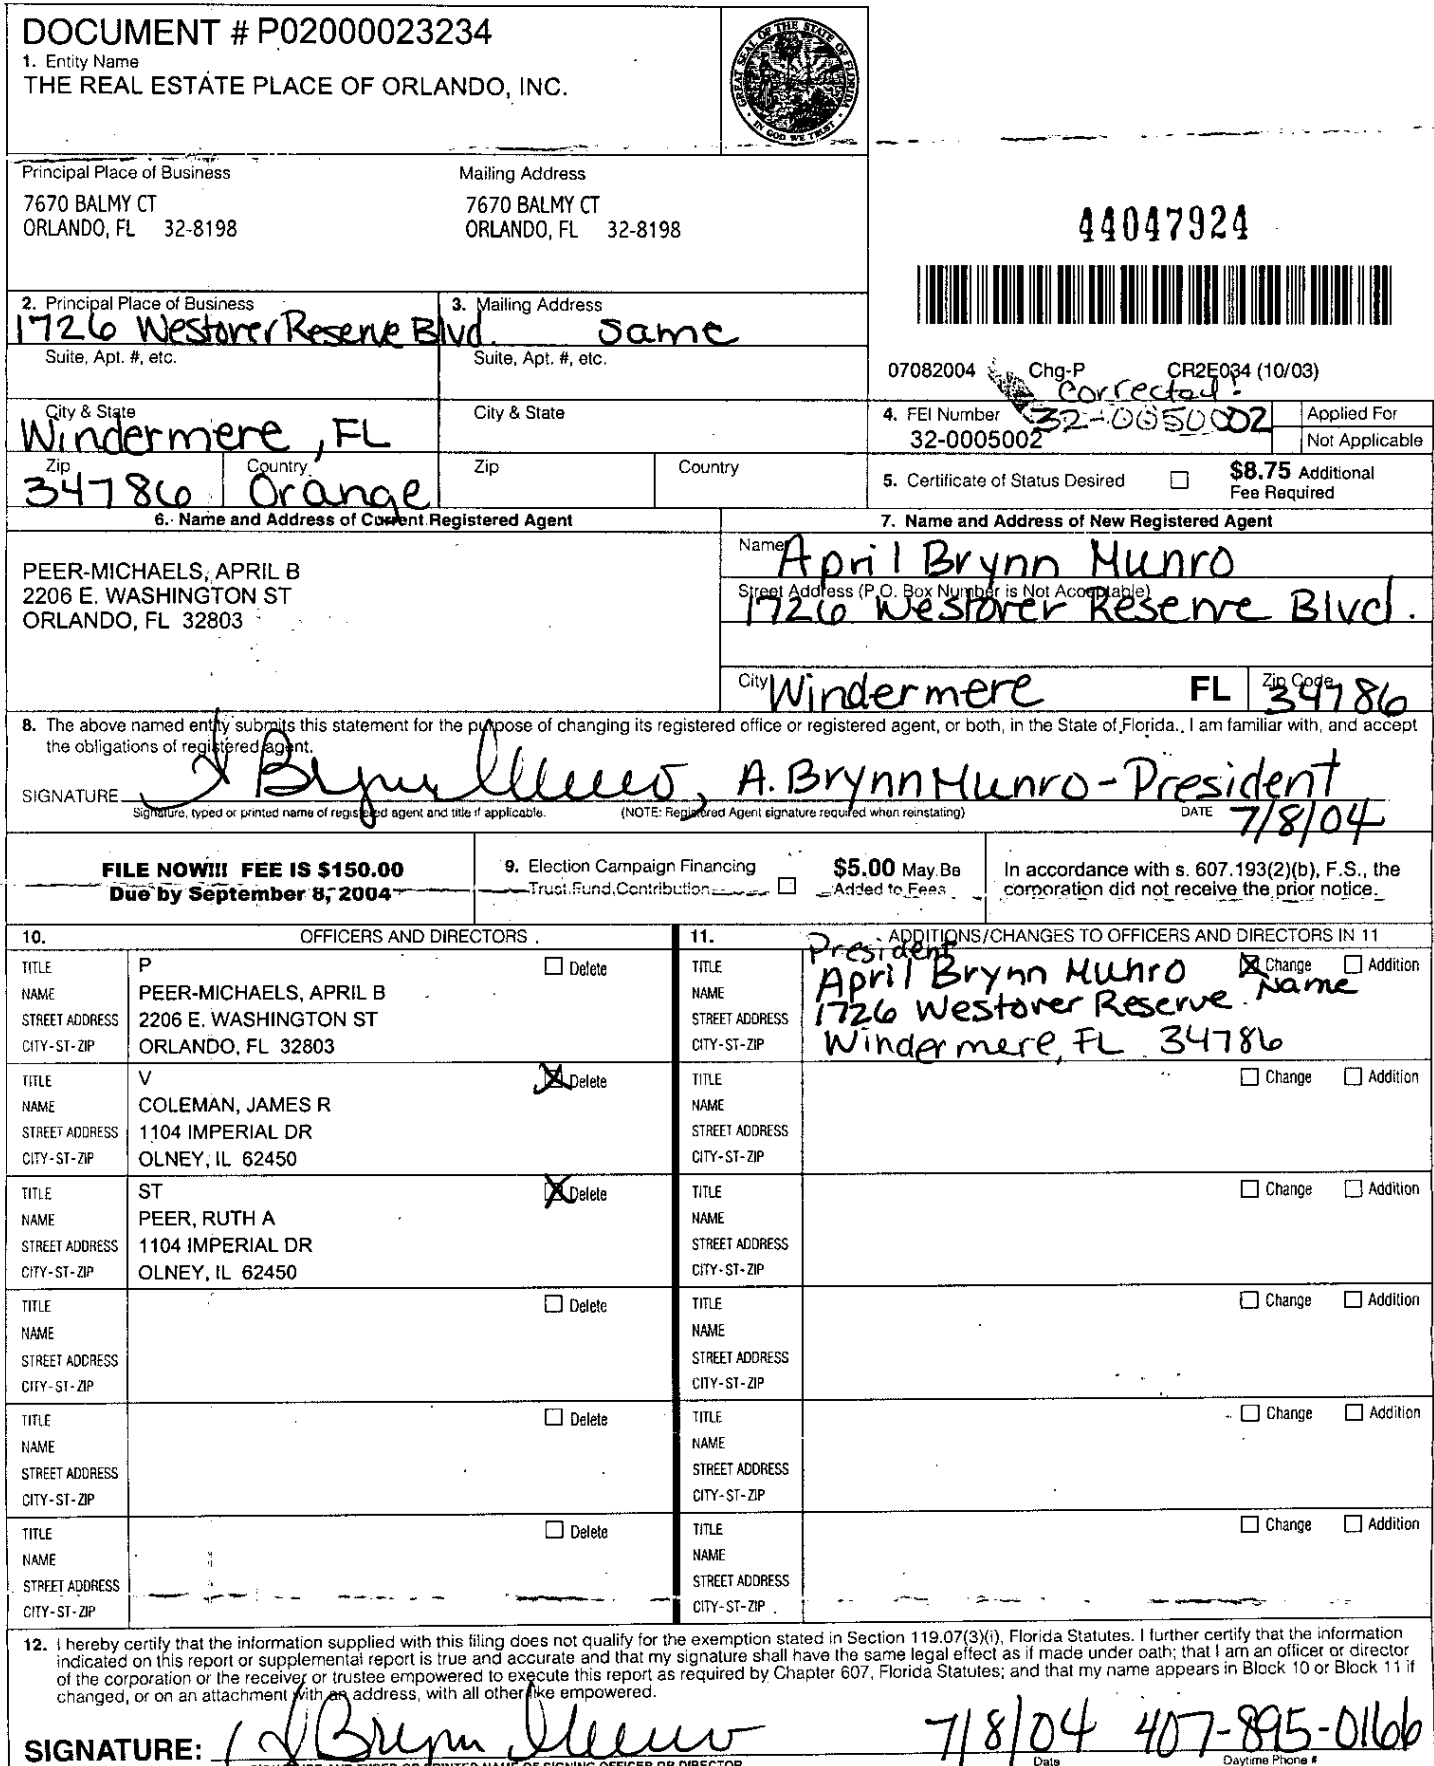 DOCUMENT # P02000023234
1. Entity Name
THE REAL ESTATE PLACE OF ORLANDO, INC.
GREAT SEAL OF THE STATE OF FLORIDA
IN GOD WE TRUST
Principal Place of Business
7670 BALMY CT
ORLANDO, FL 32-8198
Mailing Address
7670 BALMY CT
ORLANDO, FL 32-8198
44047924
07082004 Chg-P CR2E034 (10/03)
2. Principal Place of Business
1726 Westover Reserve Blvd.
3. Mailing Address
same
Suite, Apt. #, etc.
Suite, Apt. #, etc.
City & State
Windermere, FL
City & State
Zip
34786
Country
Orange
Zip
Country
corrected!
4. FEI Number
32-0005002
32-0050002
Applied For
Not Applicable
5. Certificate of Status Desired
$8.75 Additional
Fee Required
6. Name and Address of Current Registered Agent
PEER-MICHAELS, APRIL B
2206 E. WASHINGTON ST
ORLANDO, FL 32803
7. Name and Address of New Registered Agent
Name
April Brynn Munro
Street Address (P.O. Box Number is Not Acceptable)
1726 Westover Reserve Blvd.
City Windermere FL Zip Code 34786
8. The above named entity submits this statement for the purpose of changing its registered office or registered agent, or both, in the State of Florida. I am familiar with, and accept
the obligations of registered agent.
SIGNATURE A Brynn Munro, A. Brynn Munro - President
Signature, typed or printed name of registered agent and title if applicable. (NOTE: Registered Agent signature required when reinstating) DATE 7/8/04
FILE NOW!!! FEE IS $150.00
Due by September 8, 2004
9. Election Campaign Financing
Trust Fund Contribution
$5.00 May Be
Added to Fees
In accordance with s. 607.193(2)(b), F.S., the
corporation did not receive the prior notice.
10. OFFICERS AND DIRECTORS
TITLE P Delete
NAME PEER-MICHAELS, APRIL B
STREET ADDRESS 2206 E. WASHINGTON ST
CITY-ST-ZIP ORLANDO, FL 32803
TITLE V Delete
NAME COLEMAN, JAMES R
STREET ADDRESS 1104 IMPERIAL DR
CITY-ST-ZIP OLNEY, IL 62450
TITLE ST Delete
NAME PEER, RUTH A
STREET ADDRESS 1104 IMPERIAL DR
CITY-ST-ZIP OLNEY, IL 62450
TITLE Delete
NAME
STREET ADDRESS
CITY-ST-ZIP
TITLE Delete
NAME
STREET ADDRESS
CITY-ST-ZIP
TITLE Delete
NAME
STREET ADDRESS
CITY-ST-ZIP
11. ADDITIONS/CHANGES TO OFFICERS AND DIRECTORS IN 11
President
TITLE Change Addition
NAME April Brynn Munro Name
STREET ADDRESS 1726 Westover Reserve
CITY-ST-ZIP Windermere, FL 34786
TITLE Change Addition
NAME
STREET ADDRESS
CITY-ST-ZIP
TITLE Change Addition
NAME
STREET ADDRESS
CITY-ST-ZIP
TITLE Change Addition
NAME
STREET ADDRESS
CITY-ST-ZIP
TITLE Change Addition
NAME
STREET ADDRESS
CITY-ST-ZIP
TITLE Change Addition
NAME
STREET ADDRESS
CITY-ST-ZIP
12. I hereby certify that the information supplied with this filing does not qualify for the exemption stated in Section 119.07(3)(i), Florida Statutes. I further certify that the information
indicated on this report or supplemental report is true and accurate and that my signature shall have the same legal effect as if made under oath; that I am an officer or director
of the corporation or the receiver or trustee empowered to execute this report as required by Chapter 607, Florida Statutes; and that my name appears in Block 10 or Block 11 if
changed, or on an attachment with an address, with all other like empowered.
SIGNATURE: A Brynn Munro 7/8/04 407-895-0166
SIGNATURE AND TYPED OR PRINTED NAME OF SIGNING OFFICER OR DIRECTOR Date Daytime Phone #